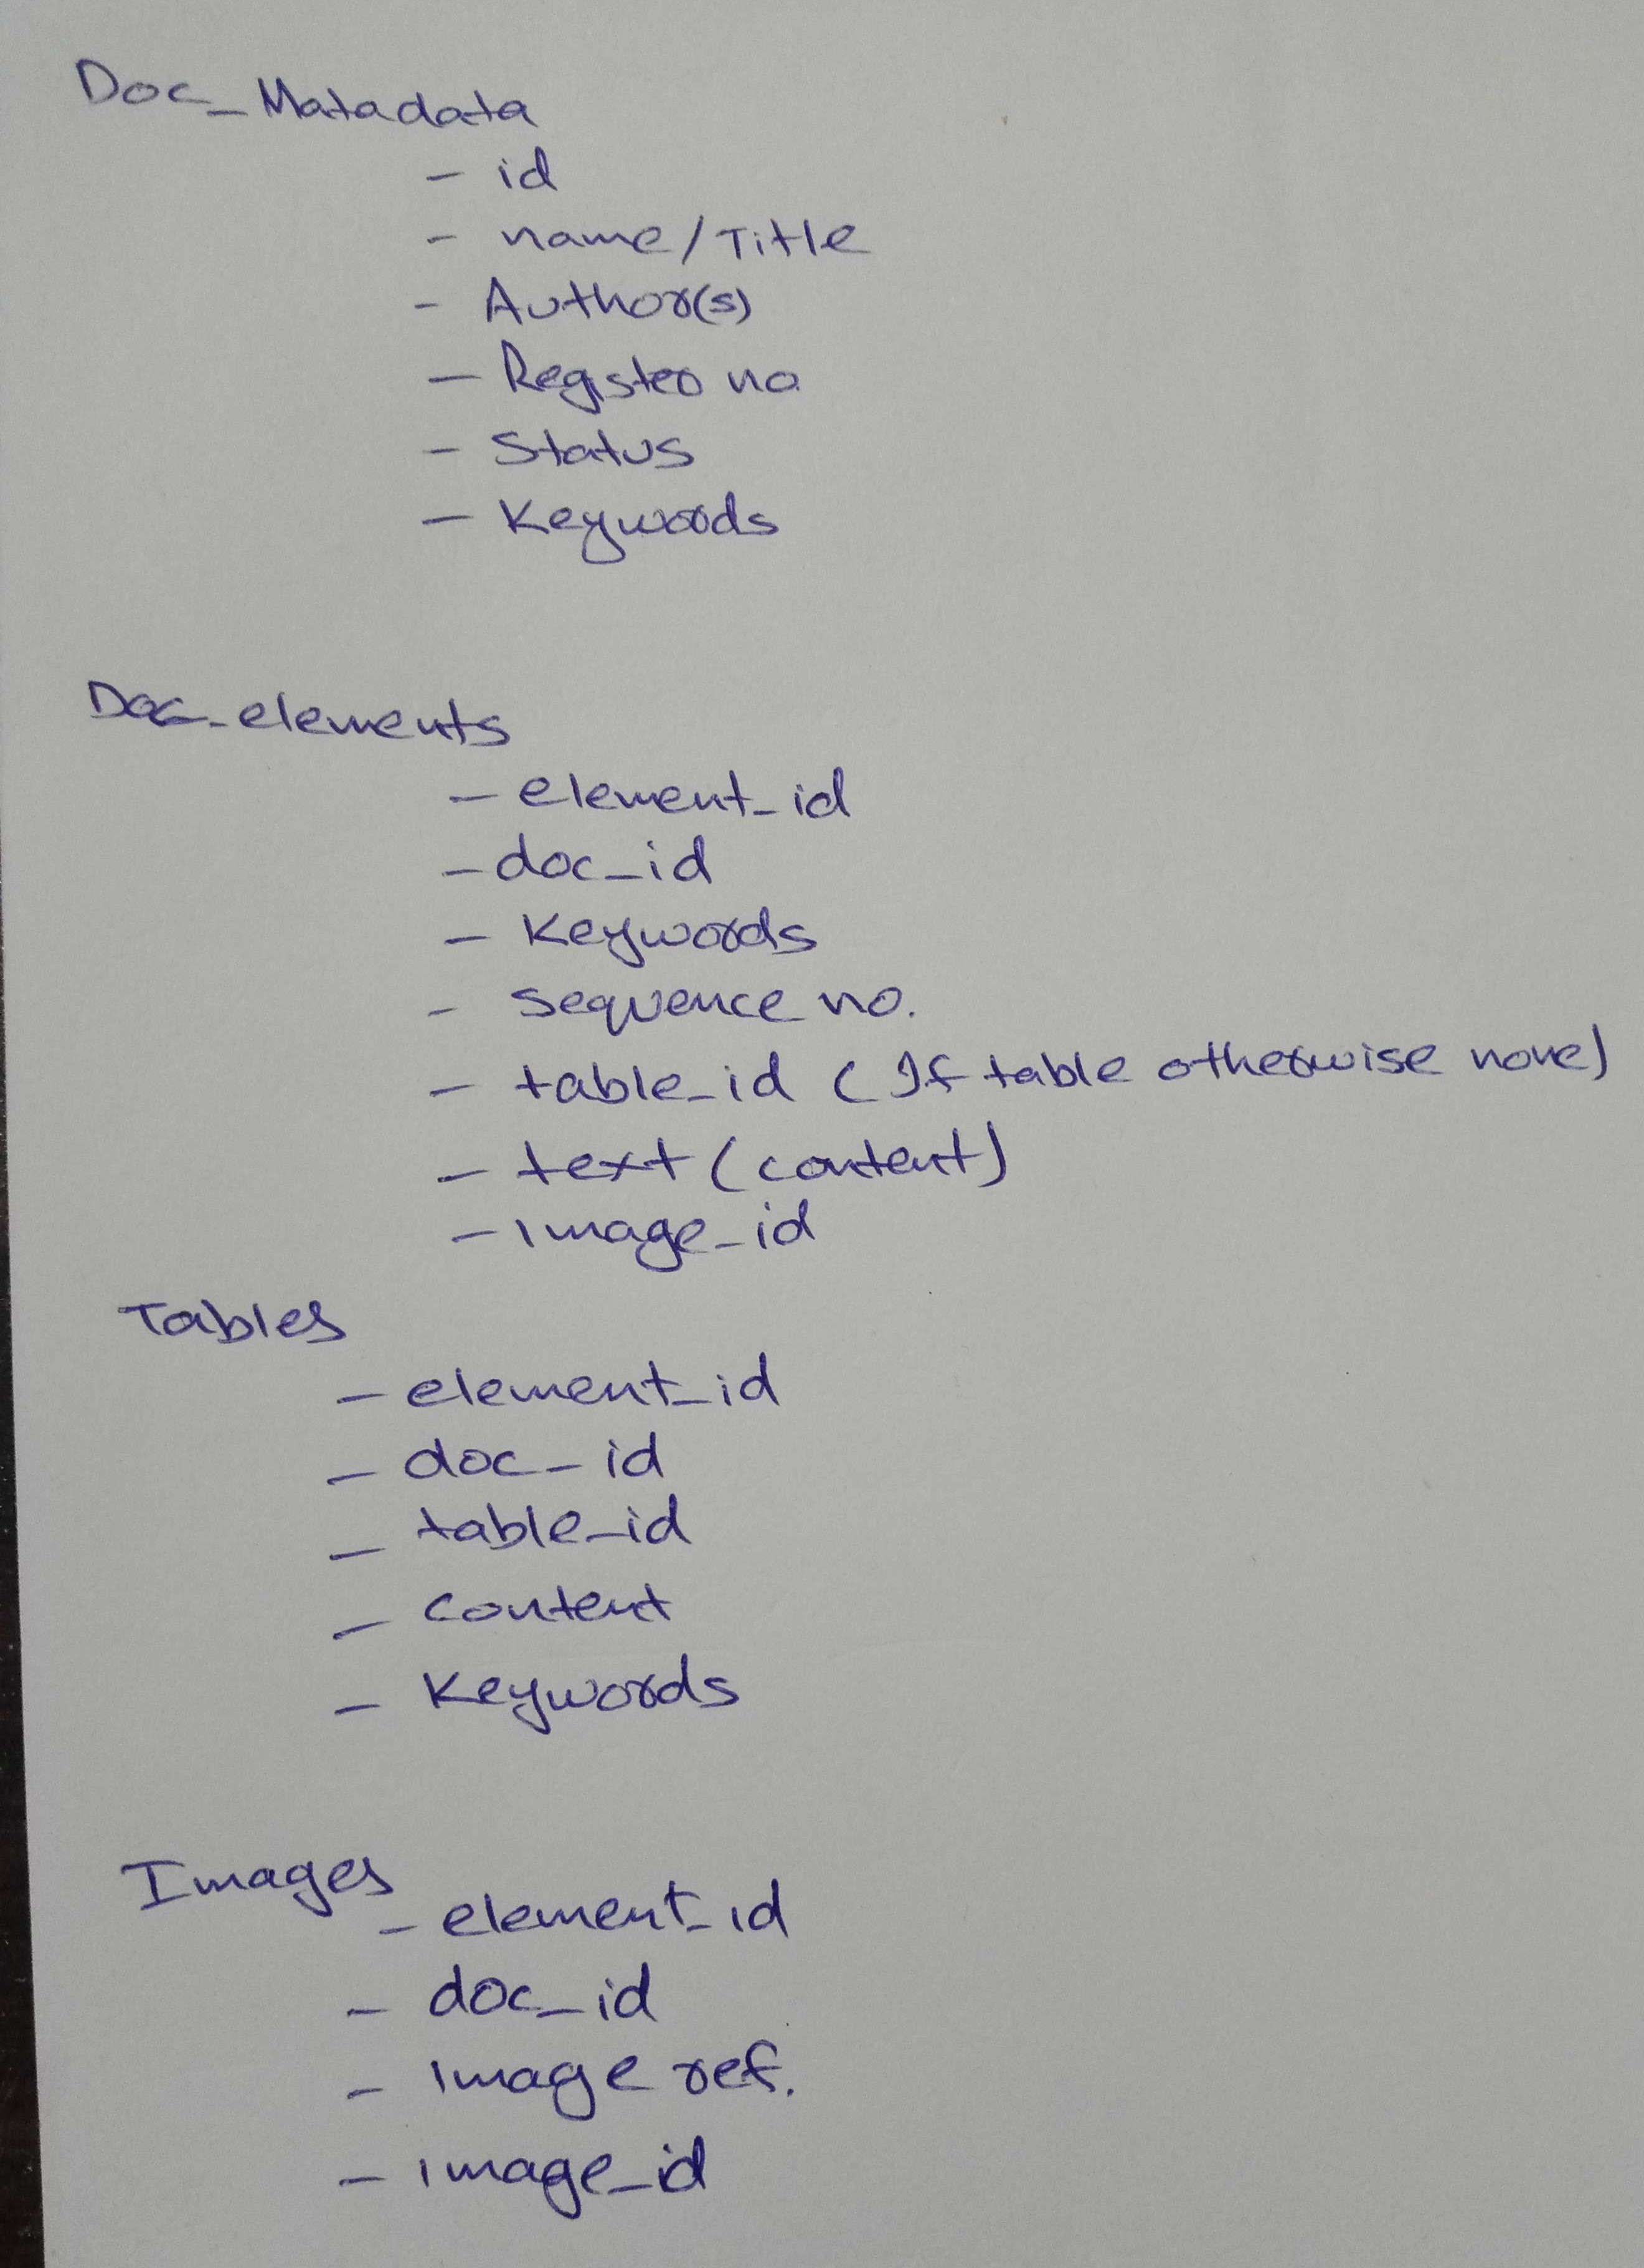 Doc_Matadata
- id
- name/Title
- Author(s)
- Register no
- Status
- Keywords
Doc_elements
- element_id
- doc_id
- Keywords
- Sequence no.
- table_id (If table otherwise none)
- text (content)
- Image_id
Tables
- element_id
- doc_id
- table_id
- content
- Keywords
Images
- element_id
- doc_id
- Image ref.
- Image_id